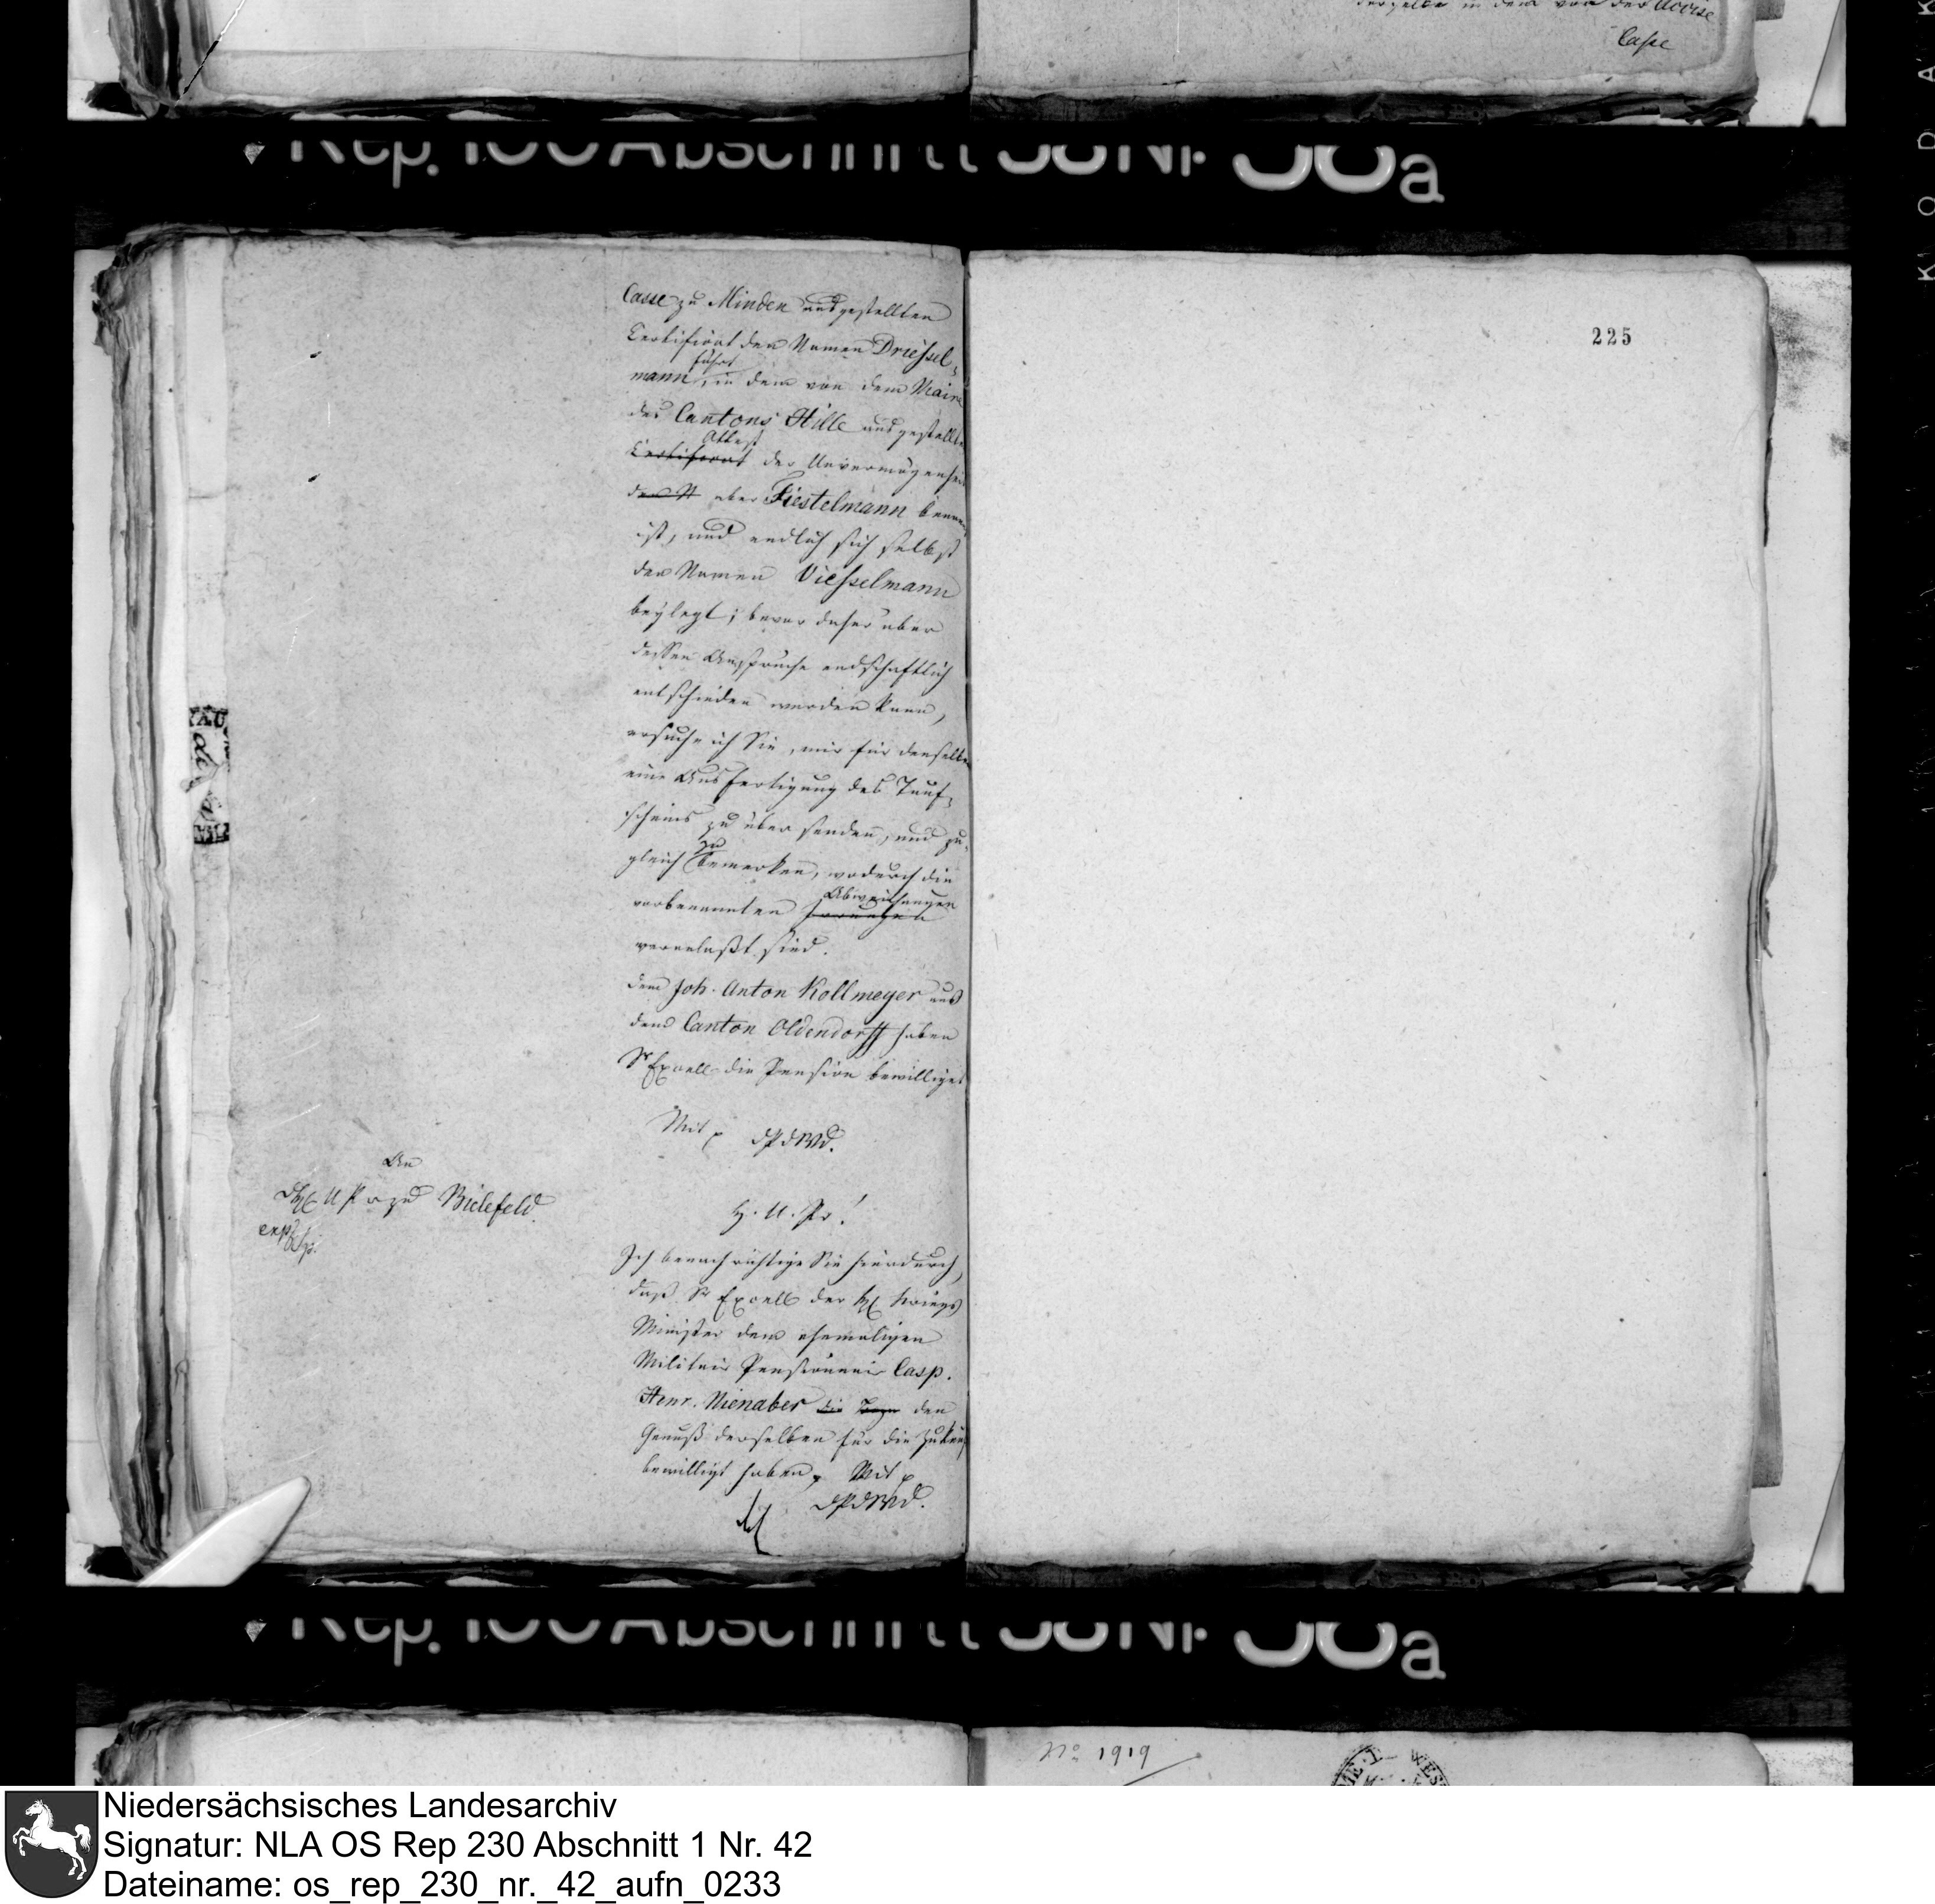 derselbe in dem von der Accise
Casse
Rep. 100 Abschnitt 38 Nr. 36a
Casse zu Minden ausgestellten
Certificat den Namen Driessel-
mann führt, in dem von dem Maire
des Cantons Hille ausgestellten
Certificat Attest der Unvermögenheit
den N aber Fiestelmann benannt
ist, und endlich sich selbst
den Namen Viesselmann
beylegt; bevor daher über
dessen Ansprüche endschaftlich
entschieden werden kann,
ersuche ich Sie, mir für denselben
eine Ausfertigung des Tauf-
scheins zu übersenden, und zu-
gleich zu bemerken, wodurch die
vorbenannten Abweichungen
veranlaßt sind.
Dem Joh. Anton Kollmeyer aus
dem Canton Oldendorff haben
Sr Excell. die Pension bewilliget
Mit p dPdWD.
An
zu Bielefeld.
H. U. Pr!
Ich benachrichtige Sie hierdurch,
daß Sr Excell der H Kriegs
Minister dem ehemaligen
Militair Pensionair Casp.
Henr. Nienaber die den
Genuß derselben für die Zukunft
bewilligt haben, Mit p
dPdWD.
225
Rep. 100 Abschnitt 38 Nr. 36a
No 1919
KODAK
Niedersächsisches Landesarchiv
Signatur: NLA OS Rep 230 Abschnitt 1 Nr. 42
Dateiname: os_rep_230_nr._42_aufn_0233